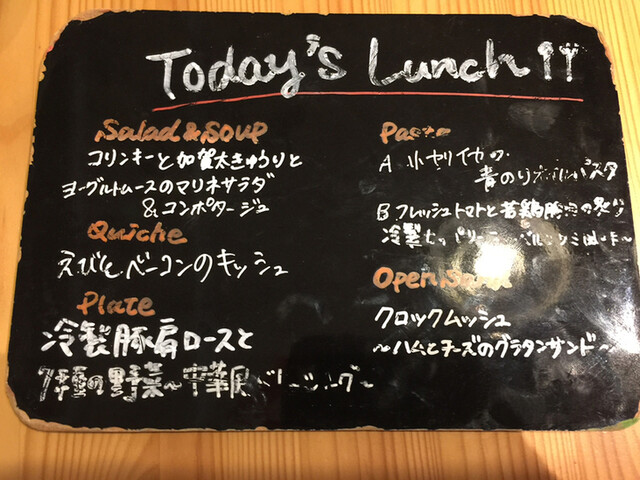 Today's Lunch
Salad & Soup
コリンキーと加賀太きゅうりと
ヨーグルトムースのマリネサラダ
&コンポタージュ
Quiche
ベーコンのキッシュ
Plate
冷製豚肩ロースと
7種の野菜〜中華風
Pasta
A 小ヤリイカの
青のり
B フレッシュトマトと若鶏
冷製
Open
クロックムッシュ
〜ハムとチーズのグラタンサンド〜